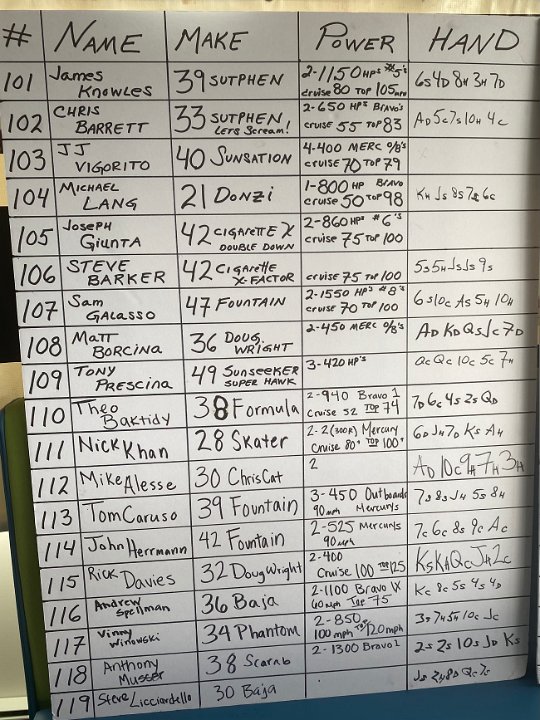 # NAME MAKE POWER HAND
101 James Knowles 39 SUTPHEN 2-1150 HP'S #5's cruise 80 TOP 105 MPH 6s 4D 8H 3H 7D
102 CHRIS BARRETT 33 SUTPHEN Let's Scream! 2-650 HP'S BRAVO'S cruise 55 TOP 83 AD 5c 7s 10H 4c
103 JJ VIGORITO 40 SUNSATION 4-400 MERC O/B's cruise 70 TOP 79
104 MICHAEL LANG 21 DONZI 1-800 HP BRAVO cruise 50 TOP 98 KH Js 8s 7s 6c
105 JOSEPH GIUNTA 42 CIGARETTE X DOUBLE DOWN 2-860 HP'S #6'S cruise 75 TOP 100
106 STEVE BARKER 42 CIGARETTE X-FACTOR cruise 75 TOP 100 5s 5H Js Js 9s
107 Sam GALASSO 47 FOUNTAIN 2-1550 HP'S #8's cruise 70 TOP 100 6s 10c As 5H 10H
108 MATT BORCINA 36 DOUG WRIGHT 2-450 MERC O/B's AD KD Qs Jc 7D
109 TONY PRESCINA 49 SUNSEEKER SUPER HAWK 3-420 HP'S Qc Qc 10c 5c 7H
110 Theo Baktidy 38 Formula 2-940 Bravo 1 Cruise 52 TOP 74 7D 6c 4s 2s QD
111 Nick Khan 28 Skater 2-2(300R) Mercury Cruise 80+ TOP 100+ 6D JH 7D Ks AH
112 Mike Alesse 30 ChrisCat 2 AD 10c 9H 7H 3H
113 Tom Caruso 39 Fountain 3-450 Outboards 90 mph Mercurys 7s 8s JH 5s 8H
114 John Herrmann 42 Fountain 2-525 Mercurys 90 mph 7c 6c 8s 9c Ac
115 Rick Davies 32 Doug Wright 2-400 Cruise 100 TOP 125 Ks KH Qc JH 2c
116 Andrew Spellman 36 Baja 2-1100 Bravo 1X 60 mph TOP 75 Kc 8c 5s 4s 4D
117 Vinny Winowski 34 Phantom 2-850 100 mph TO 120 mph 3s 7H 5H 10c Jc
118 Anthony Musser 38 Scarab 2-1300 Bravo 1 2s 2s 10s JD Ks
119 Steve Licciardello 30 Baja Js 8D Qc 7s